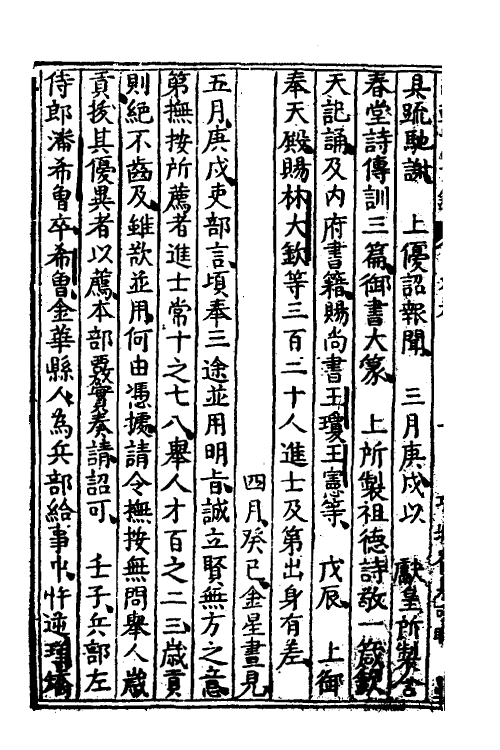 具疏馳謝　上優詔報聞　三月庚戌以　獻皇所製含
春堂詩傳訓三篇御書大篆　上所製祖德詩敬一箴欽
天記誦及内府書籍賜尚書王瓊王憲等　戊辰　上御
奉天殿賜林大欽等三百二十人進士及第出身有差
四月癸巳金星晝見
五月庚戌吏部言頃奉三途並用明旨誠立賢無方之意
第撫按所薦者進士常十之七八舉人才百之二三歲貢
則絕不齒及雖欲並用何由憑據請令撫按無問舉人歲
貢拔其優異者以薦本部覈實奏請詔可　壬子兵部左
侍郎潘希曾卒希曾金華縣人為兵部給事中忤逆瑾矯